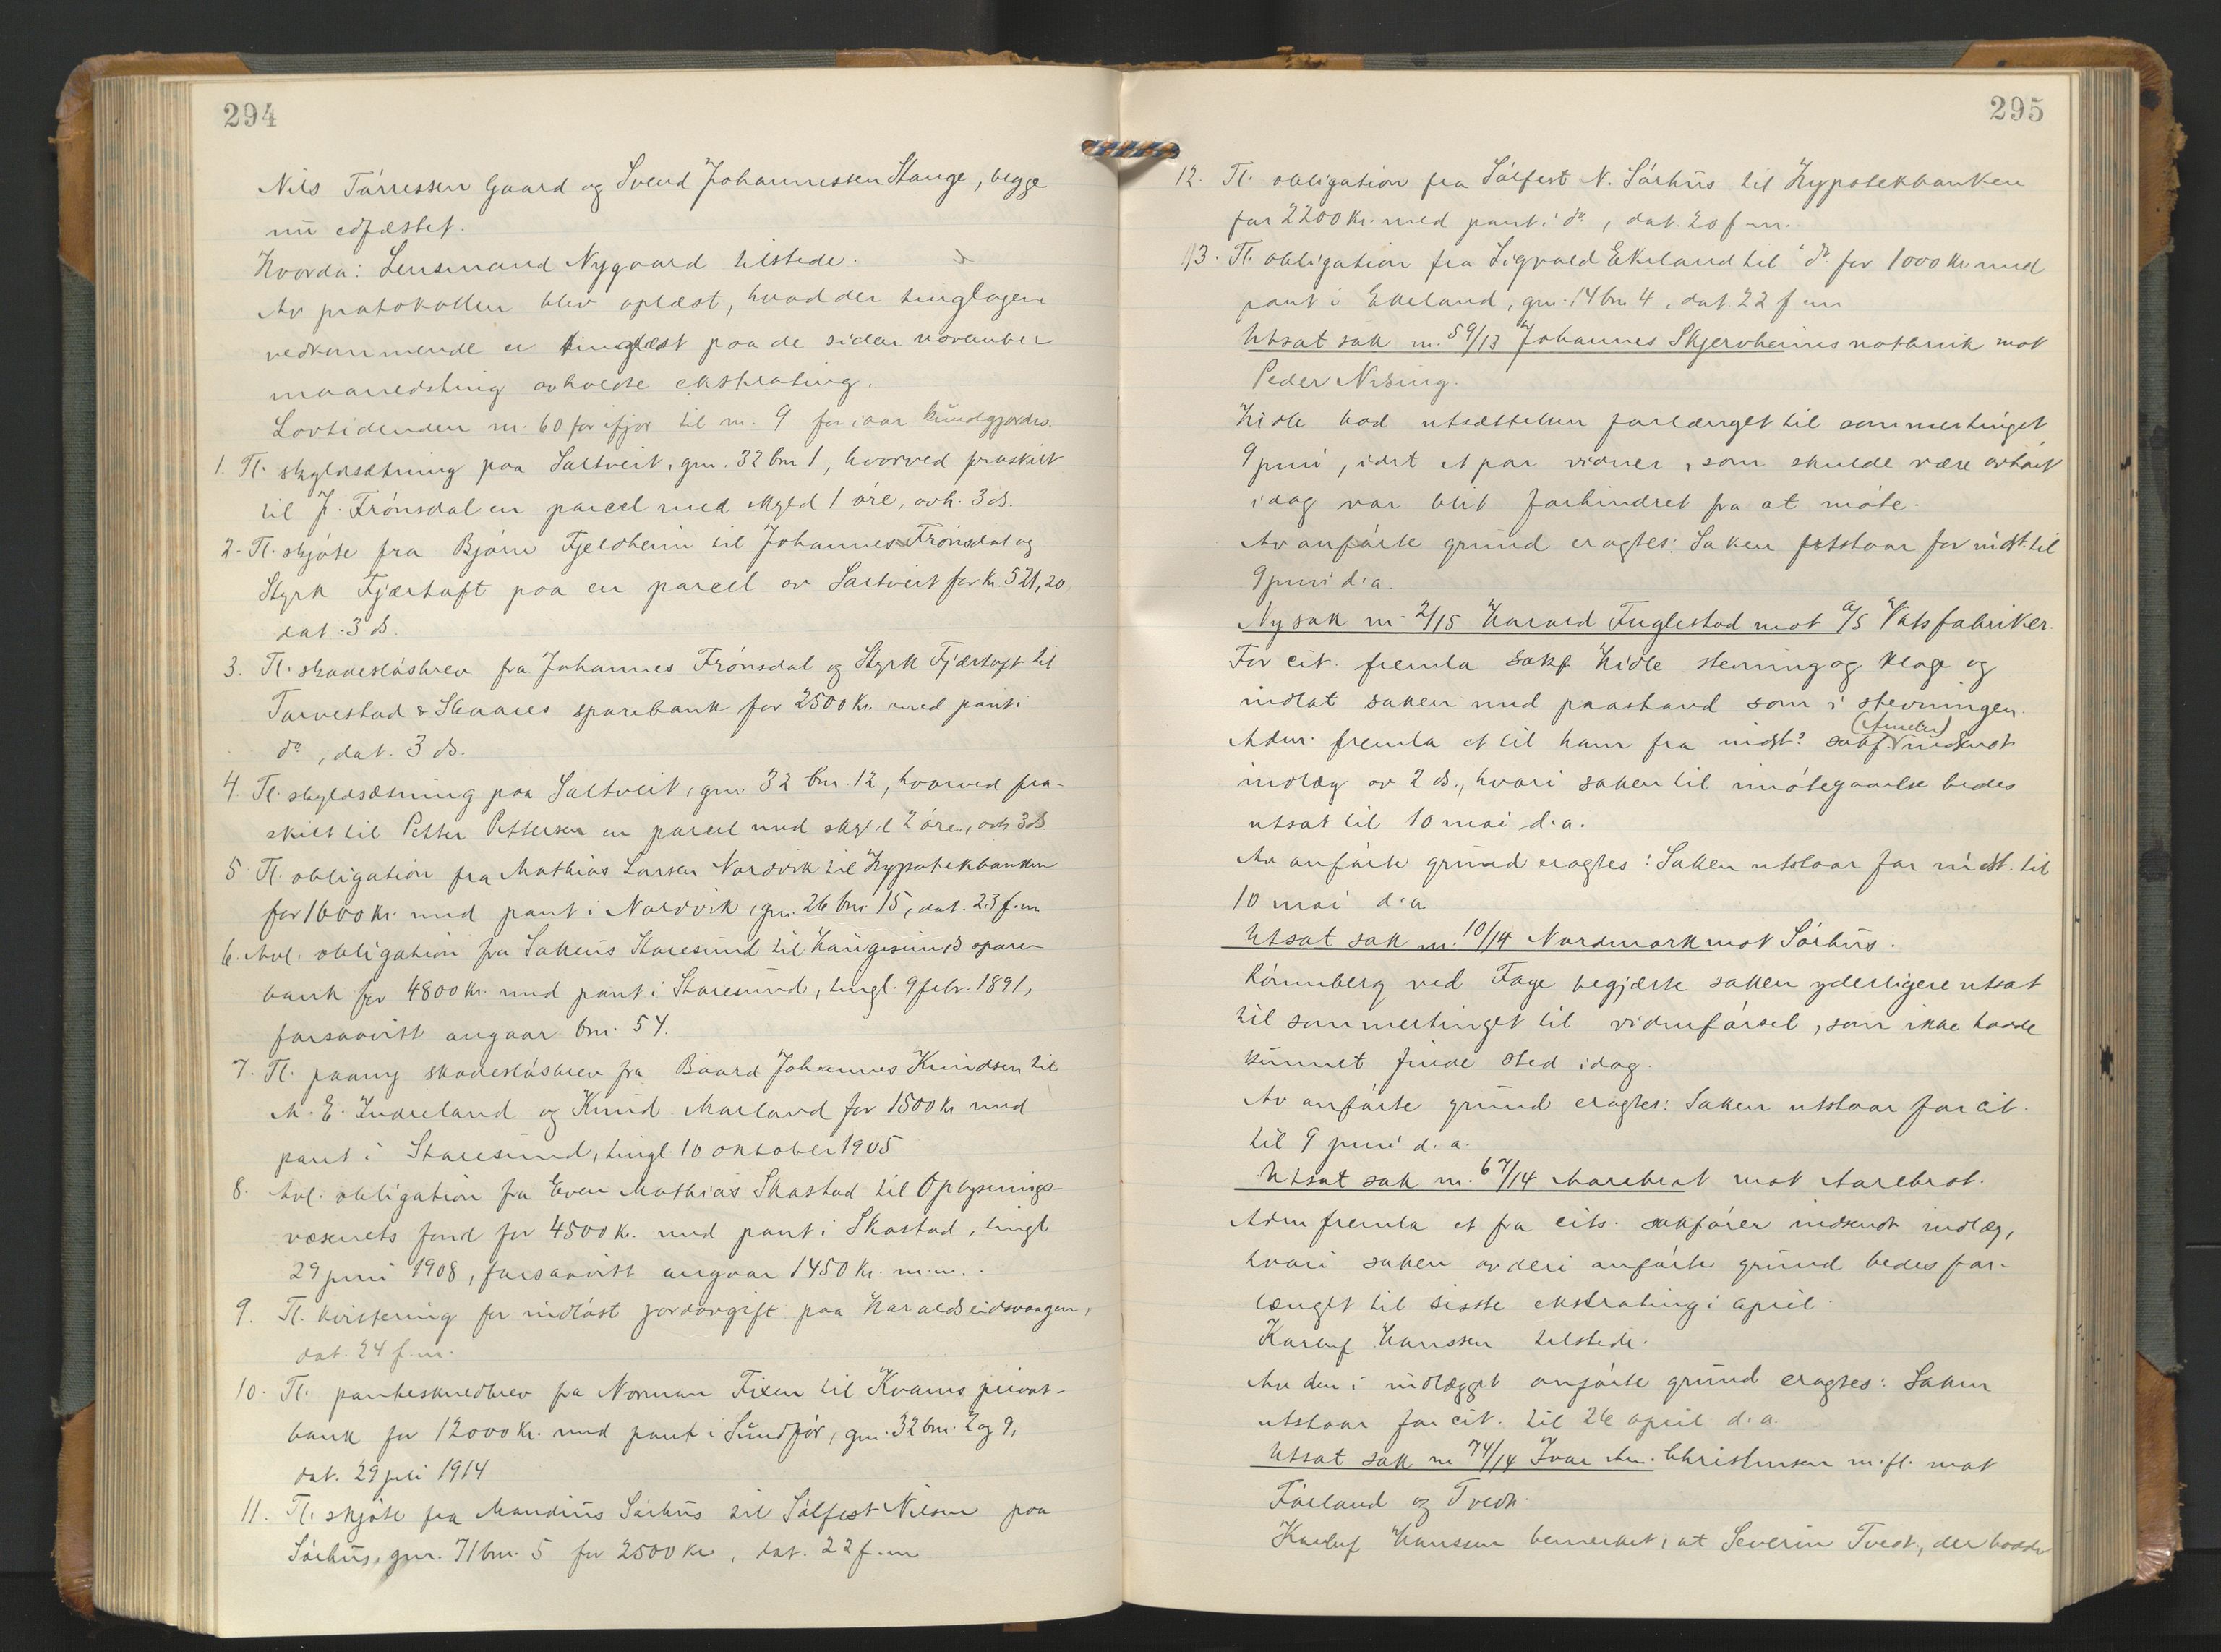 294
Nils Tørressen Gaard og Svend Johannessen Stange, begge
nu edfæstet.
Hvorda: Lensmand Nygaard tilstede.
Av protokollen blev oplæst, hvad der tinglagen
vedkommende er tinglæst paa de siden november
maanedsting avholdte ekstrating.
Lovtidenden nr. 60 for ifjor til nr. 9 for iaar kundgjordes.
1. Tl. skyldsætning paa Saltveit, gnr. 32 bnr 1, hvorved fraskilt
til J. Frønsdal en parcel med skyld 1 øre, avh. 3 ds.
2. Tl. skjøte fra Bjørn Fjeldheim til Johannes Frønsdal og
Styrk Fjærtoft paa en parcel av Saltveit for kr. 521,20
dat. 3 ds.
3. Tl. skadesløsbrev fra Johannes Frønsdal og Styrk Fjærtoft til
Torvestad & Skaares sparebank for 2500 kr. med pant i
do, dat. 3 ds.
4. Tl. skyldsætning paa Saltveit, gnr. 32 bnr. 12, hvorved fra-
skilt til Petter Pettersen en parcel med skyld 2 øre, avh. 3 ds
5. Tl. obligation fra Mathias Larsen Nordvik til Hypotekbanken
for 1600 kr. med pant i Nordvik, gnr. 26 bnr 15, dat. 23 f.m
6. Avl. obligation fra Sakeus Staresund til Haugesunds spare-
bank for 4800 kr. med pant i Staresund, tingl. 9 febr. 1891,
forsaavitt angaar bnr. 54.
7. Tl. paany skadesløsbrev fra Baard Johannes Knudsen til
M. E. Indreland og Knud Marland for 1500 kr med
pant i Staresund, tingl. 10 oktober 1905
8. Avl. obligation fra Even Mathias Skastad til Oplysnings-
væsenets fond for 4500 k. med pant i Skastad, tingl
29 juni 1908, forsaavitt angaar 1450 kr. m.m.
9. Tl. kvittering for indløst jordavgift paa Haraldseidsvaagen,
dat. 24 f.m.
10. Tl. panteskuedbrev fra Norman Fixen til Kvams privat-
bank for 12000 kr. med pant i Sundfør, gnr. 32 bnr. 2 og 9,
dat. 29 juli 1914
11. Tl. skjøte fra Mandius Sørhus til Sølfest Nilsen paa
Sørhus, gnr. 71 bnr. 5 for 2500 kr, dat. 22 f.m
295
12. Tl. obligation fra Sølfest N. Sørhus til Hypotekbanken
for 2200 kr. med pant i do, dat. 20 f.m.
13. Tl. obligation fra Sigvald Ekeland til do for 1000 kr med
pant i Ekeland, gnr. 14 bnr 4, dat. 22 f m
Utsat sak nr. 59/13 Johannes Skjervheims notbruk mot
Peder Nising.
Hidle bad utsættelsen forlænget til sommertinget
9 juni, idet et par vidner, som skulde være avhørt
idag var blit forhindret fra at møte.
Av anførte grund eragtes: Saken utstaar for indst. til
9 juni d.a.
Ny sak nr. 2/15 Harald Fuglestad mot A/S Vats fabriker.
For cit. fremla sakf. Hidle stevning og klage og
indlot saken med paastand som i stevningen.
Adm. fremla et til ham fra indst.s sakf. indsendt
indlæg av 2 ds., hvori saken til imøtegaaelse bedes
utsat til 10 mai d.a.
Av anførte grund eragtes: Saken utstaar for indst. til
10 mai d.a
Utsat sak nr. 10/14 Nordmark mot Sørhus.
Rønneberg ved Faye begjærte saken yderligere utsat
til sommertinget til vidneførsel, som ikke hadde
kunnet finde sted idag.
Av anførte grund eragtes: Saken utstaar for cit.
til 9 juni d.a.
Utsat sak nr. 67/14 Aarebrot mot Aarebrot.
Adm fremla et fra cits. sakfører indsendt indlæg,
hvori saken av deri anførte grund bedes for-
længet til sisste ekstrating i april.
Karluf Hanssen tilstede.
Av den i indlægget anførte grund eragtes: Saken
utstaar for cit. til 26 april d.a.
Utsat sak nr 74/14 Ivar An. Christensen m.fl. mot
Førland og Tvedt.
Karluf Hanssen bemerket, at Severin Tvedt, der hadde